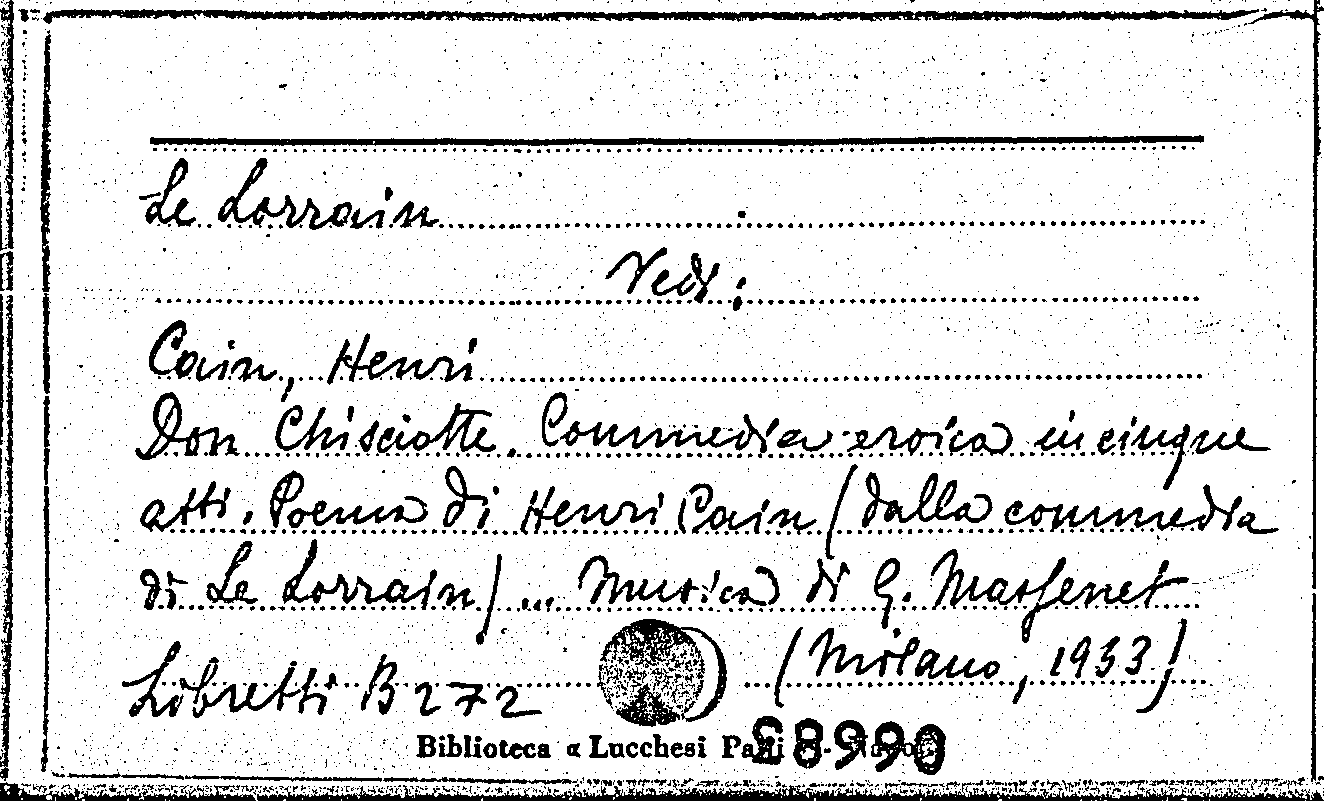 Le Lorrain
Vedi:
Cain, Henri
Don Chisciotte. Commedia eroica in cinque
atti. Poema di Henri Cain (dalla commedia
di Le Lorrain) ... Musica di G. Massenet
(Milano, 1933)
Libretti B 272
Biblioteca « Lucchesi Palli